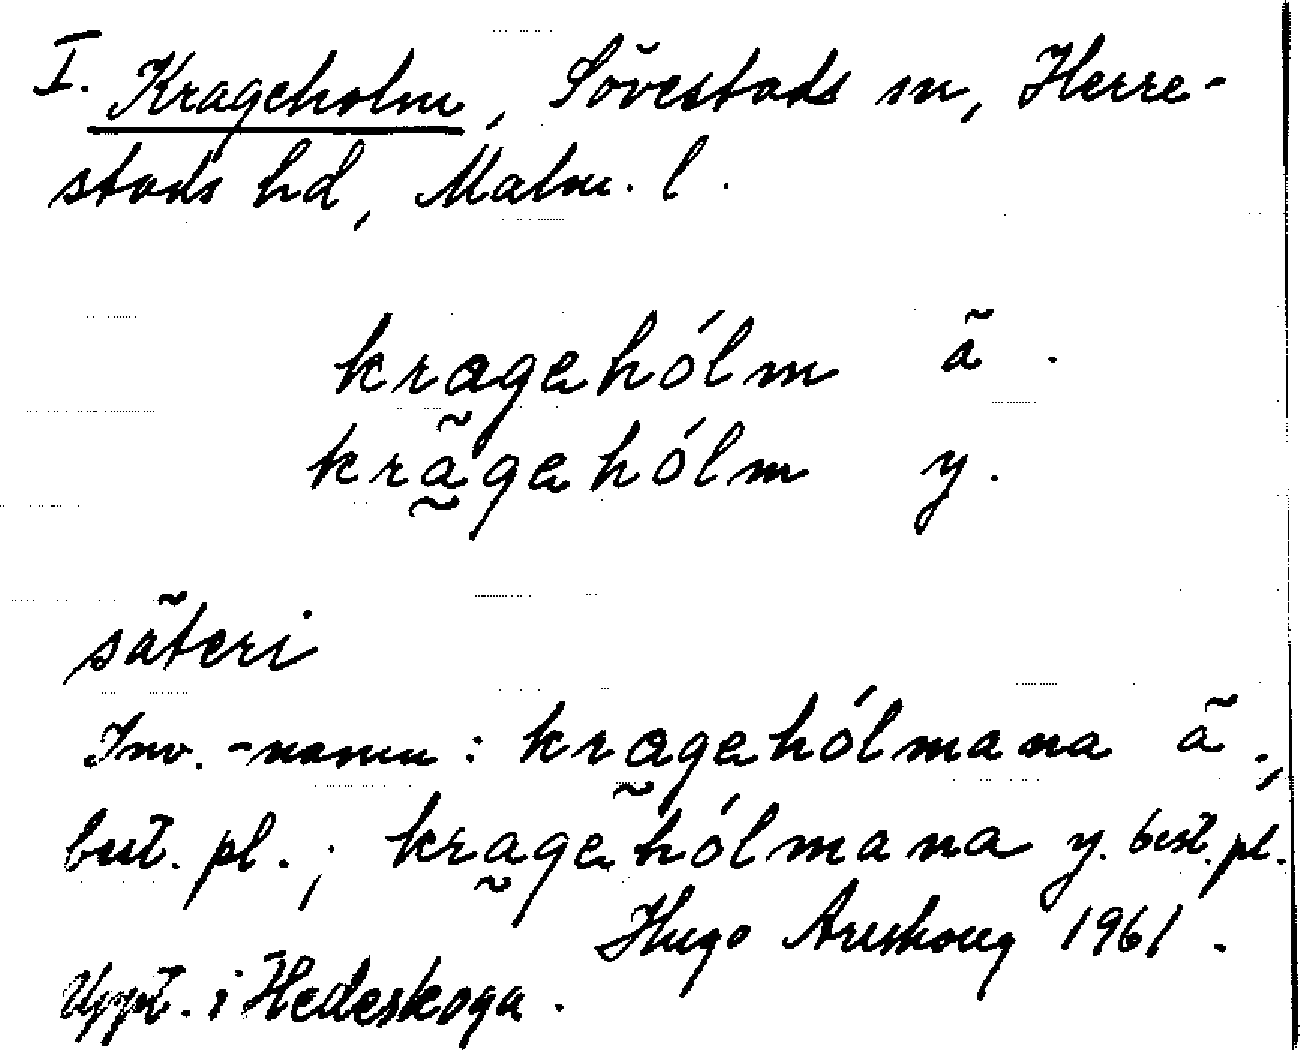 I. Krageholm, Sövestads sn, Herre-
stads hd, Malm. l.
kragehólm ä.
kra̰gehólm y.
säteri
Inv.-namn: kragehólmana ä.,
best. pl.; kra̰gehólmana y. best. pl.
Hugo Areskoug 1961.
Uppt. i Hedeskoga.